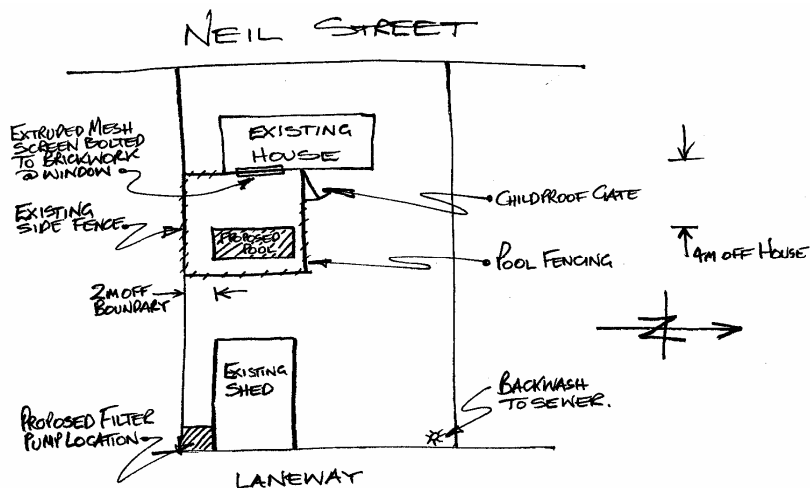 NEIL STREET
EXTRUDED MESH
SCREEN BOLTED
TO BRICKWORK
@ WINDOW
EXISTING
HOUSE
CHILDPROOF GATE
EXISTING
SIDE FENCE
PROPOSED
POOL
POOL FENCING
4M OFF HOUSE
2M OFF
BOUNDARY
N
EXISTING
SHED
BACKWASH
TO SEWER.
PROPOSED FILTER
PUMP LOCATION
LANEWAY